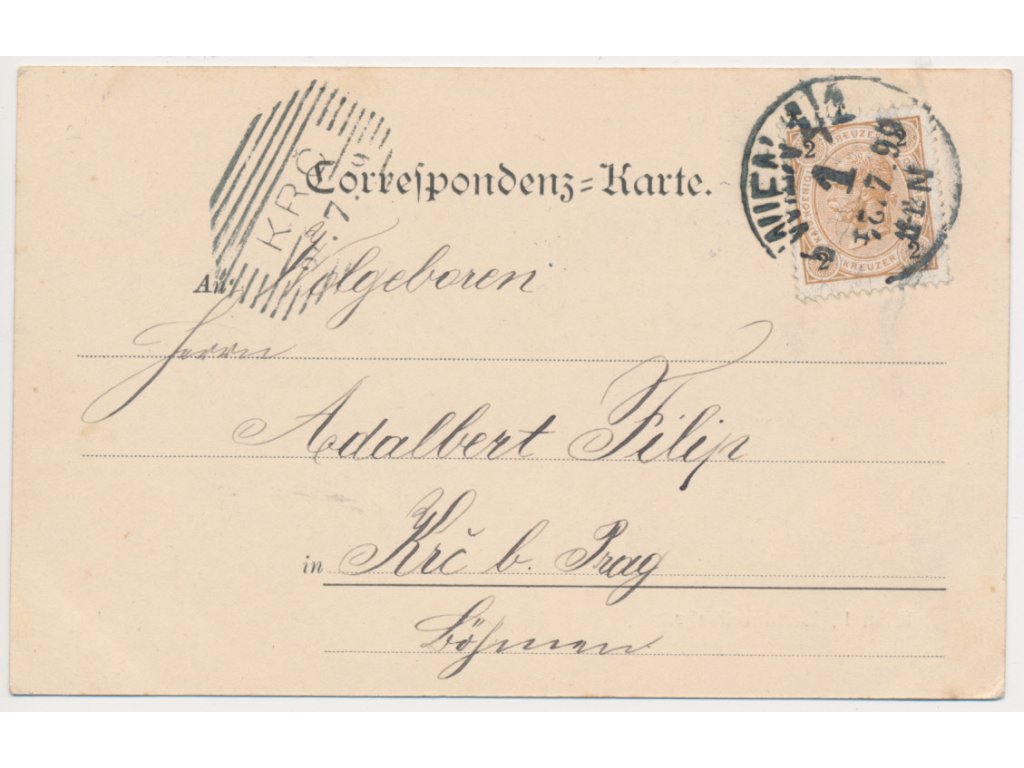 Correspondenz=Karte.
An: Wolgeboren
Herrn
Adalbert Filip
in Krč b. Prag
Böhmen
KRČ
WIEN 4/1
1
27.7.99
WIEN
2 KREUZER 2
2 KREUZER 2